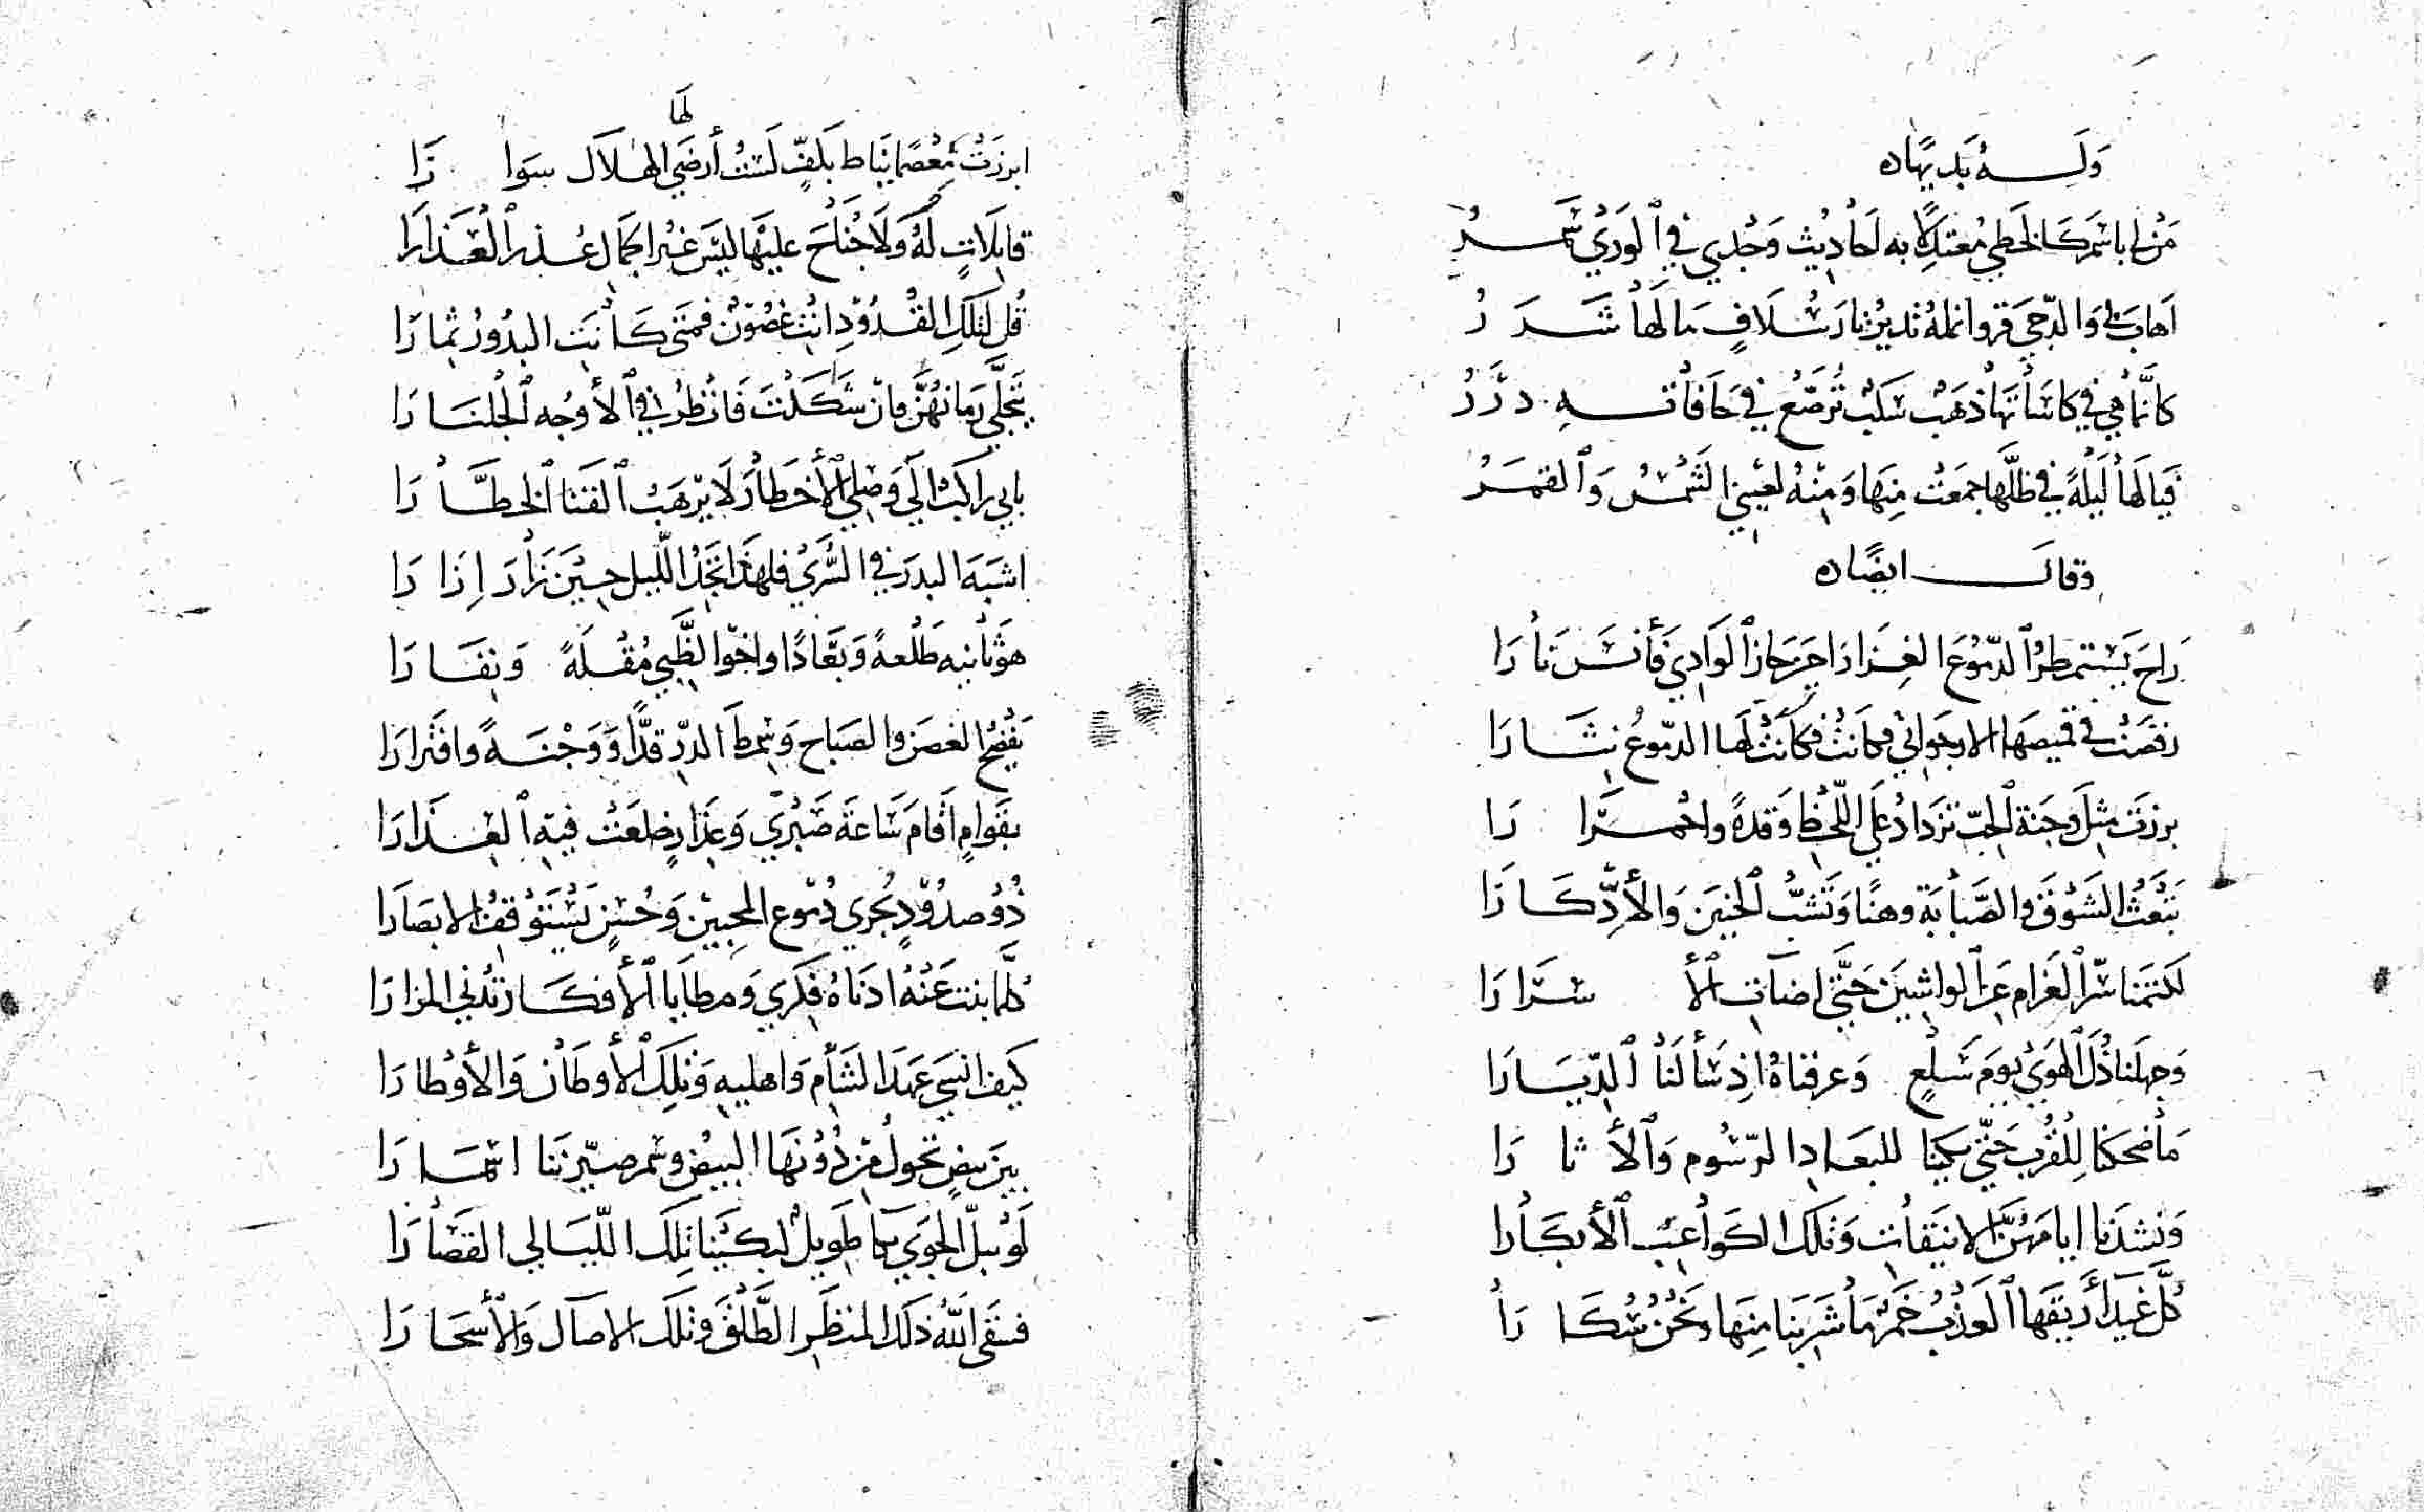 وَلَـــهُ بَديهًا ه
مَن لي باسْمَر كَالخَطي مُعتدِلًا به لَحاديث وَجْدي في ٱلوَرَي سَمَـــرُ
اَهابَني وَالدّجي قرو انملهُ تديرُ نارَ سُلَافٍ مَا لَهَا شَــرَرُ
كانَّما هي في كاسَاتها ذهَبٌ سَكبٌ تُرصّعُ في حَافاتـــهِ دُرَرُ
فيا لَهَا لَيلةً في ظلّها جمعَتْ مِنهَا وَمِنْهُ لعَيْني الشَمْسُ وَٱلقمَرُ
وقالـــ ايضًا ه
رَاحَ يَستمطرُ ٱلدّموُعَ الغِزارَا حِيَن جَازَ ٱلوَادِي فَأنسَ نارَا
رقصَتْ في قميصَها الارجَواني فكانَتْ لَهَا الدّموُعُ نِثَــارَا
برزَت مثِلَ وَجنَة ٱلحِبّ تزدَادُ عَلَي اللّحْظِ وَقدةً واحْمِــرَّارَا
تبعَثُ الشَوْقَ والصَّبابَة وهنًا وَتشبُّ ٱلحَنِينَ وَالأدِّكَــارَا
لكتمنا سّرَ ٱلغَرام عَنِ ٱلواشِينَ حَتَّي اضات ٱلأسْرَارَا
وَجهلنا ذُلَّ ٱلهَوَي يَومَ سَلعٍ وَعرفناهُ اذِ سَألنَا ٱلدِّيَــارَا
مَا ضحكنا لِلقُربِ حَتّي بَكينا للبعَادِ الرّسُوم وَٱلأثارَا
وَنشدنا ايامَهُنَّ الانيَقاتِ وَتلكَ الكَواعِبَ ٱلأبكَارَا
كلَّ غَيدَاَّ ريقهَا ٱلعَذبُ خَمرٌ مَا شَرِبَنا مِنهَا وَنحْنُ سُكَارَا
ابرزَتْ مِعْصَمًا يُنَاط بكَفٍّ لَسْتُ أرضَي لَهَا الهـلَالَ سِوَارَا
قاتِلَاتٍ لَهُ وَلَا جُنَاحَ عليْهَا ليسَ غيُر الجَمال عُـذرُ ٱلعَذَارَا
قُل لتلكِ القُدوُدِ انتُ غصُوْنٌ فمتَي كَانَتِ البدُورُ ثِمَارَا
تتجلَّي رُمانهُنَّ فانْ شَاكَلْتَ فَانْظُرْ في ٱلأوجُه ٱلجُلنَــارَا
بابي راكبُ الَي وَصْلي الأخطَارَ لَا يرْهَبُ ٱلقَنَا ٱلخَطـَّارَا
اشبَهَ البدرَ في السُّرَي فلهَذا اتخَذ اللّيل حِيْنَ زَارَ إِزَارَا
هوَ ثانيه طَلْعةً وَبعَادًا واخوا لظَّبي مُقْلَةً وَنِفَــارَا
يَفضحُ الغصَن والصَباح وَسِمطَ الدّرِ قدًّا وَوَجْنَــةً وافتَرارَا
بقَوامٍ اَقامَ سَاعَة صَبْرَي وَعِذارٍ خلعَتْ فيهِ ٱلعِــذَارَا
ذُوُ صدُوُدٍ يُجري دُموُعَ المحِبيْنَ وَحُسْنٍ يَسْتَوْقفُ الابصَارَا
كلَّما بنت عَنْهُ ادنَاهُ فِكَري وَمطايَا ٱلأفكَــار تُدني المزارَا
كيفَ انسَي عَهدَ الشَأم وَاهليهِ وَتلِكَ ٱلأوطَانَ وَالأوْطارَا
بينَ بيضٍ تحولُ مِنْ دُوُنهَا البيضُ وسُمرٍ صيّرننَا اسْمَــارَا
لَوْ يبلُّ الجوَي بكاً طَويلٌ لبكَيْنَا تِلكَ اللّيَــالي القصَارَا
فسَقَي اللّهُ ذَلكَ المنظَرِ الطَّلْقَ وَتلكَ الاصَال وَالأسْحَارَا